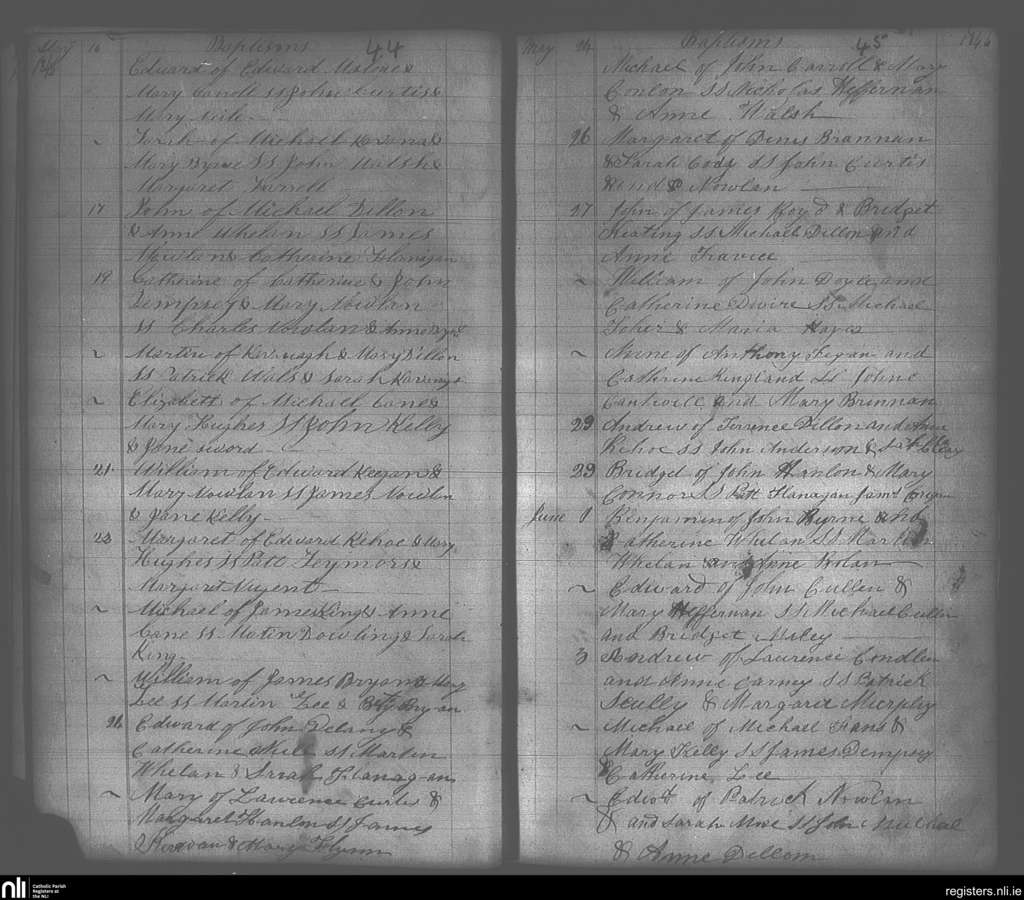 May 16 Baptisms 44
Edward of Edward Malone &
Mary Carroll SS John Curtis &
Mary
~ of Michael
Mary Byrne SS John Walsh &
Margaret Farrell
17 John of Michael Dillon
& Anne Whelan SS James
Nowlan & Catherine Flanagan
19 Catherine of Catherine & John
Dempsey & Mary Nowlan
SS Charles Nowlan & Anne
~ Martin of Kavanagh & Mary Dillon
SS Patrick & Sarah
~ Elizabeth of Michael Cane &
Mary Hughes SS John Kelly
& Jane Sword
21 William of Edward Keegan &
Mary Nowlan SS James Nowlan
& Jane Kelly
23 Margaret of Edward Kehoe & Mary
Hughes SS Patt &
Margaret Nugent
~ Michael of James King & Anne
Cane SS Dowling & Sarah
King
~ William of James Bryan & Mary
Lee SS Martin Lee & Bryan
24 Edward of John Delany &
Catherine SS Martin
Whelan & Sarah Flanagan
~ Mary of Laurence &
Margaret Hanlon SS James
& Mary Flynn
May 24 Baptisms 45 1846
Michael of John Carroll & Mary
Conlon SS Nicholas Heffernan
& Anne Walsh
26 Margaret of Denis Brannan
& Sarah Cody SS John Curtis
Nowlan
27 John of James & Bridget
Keating SS Michael Dillon and
Anne
~ William of John Doyle and
Catherine Dwire SS Michael
Toher & Maria Hayes
~ Anne of Anthony Fegan and
Cathrine Kingland SS Johne
Cantwell and Mary Brennan
29 Andrew of Terence Dillon and Ann
Kehoe SS John Anderson &
29 Bridget of John Hanlon & Mary
Connor SS Patt Flanagan
June 1 Benjamin of John Byrne and
Catherine Whelan SS Martin
Whelan and Anne Nolan
~ Edward of John Cullen &
Mary Heffernan SS Michael Cullen
and Bridget Miley
3 Andrew of Laurence Condlen
and Anne Carney SS Patrick
Scully & Margaret Murphy
~ Michael of Michael &
Mary Kelly SS James Dempsey
& Catherine Lee
~ of Patrick Nowlan
and Sarah SS John
& Anne Dillon
nli Catholic Parish
Registers at
the NLI
registers.nli.ie